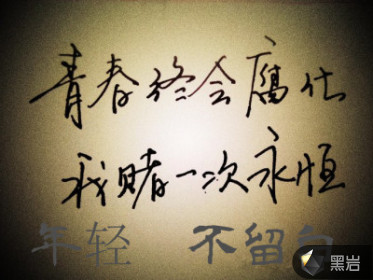 青春终会腐仕
我赌一次永恒
年轻 不留白
黑岩